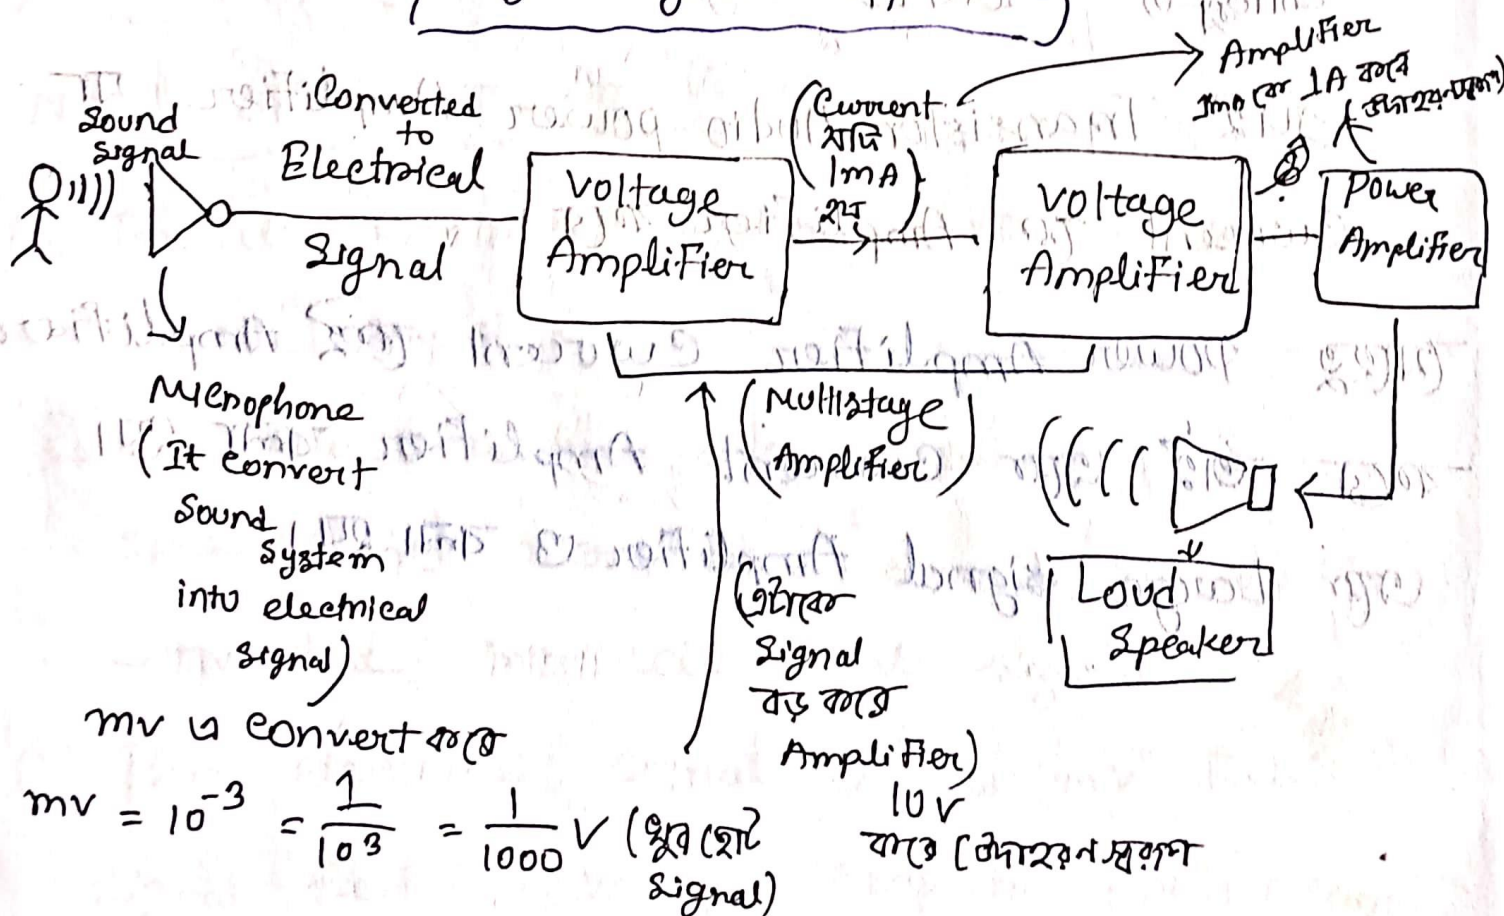 Sound
Signal
Converted
to
Electrical
Signal
Voltage
Amplifier
(Current
যদি
1mA
হয়)
Voltage
Amplifier
Amplifier
1mA কে 1A করে
(উদাহরণস্বরূপ)
Power
Amplifier
Microphone
(It convert
Sound
System
into electrical
Signal)
(Multistage
Amplifier)
(এটাকে
Signal
বড় করে
Amplifier)
10V
করে (উদাহরণ স্বরূপ
Loud
Speaker
mv এ convert করে
mv = 10⁻³ = 1/10³ = 1/1000 V (খুব ছোট
Signal)